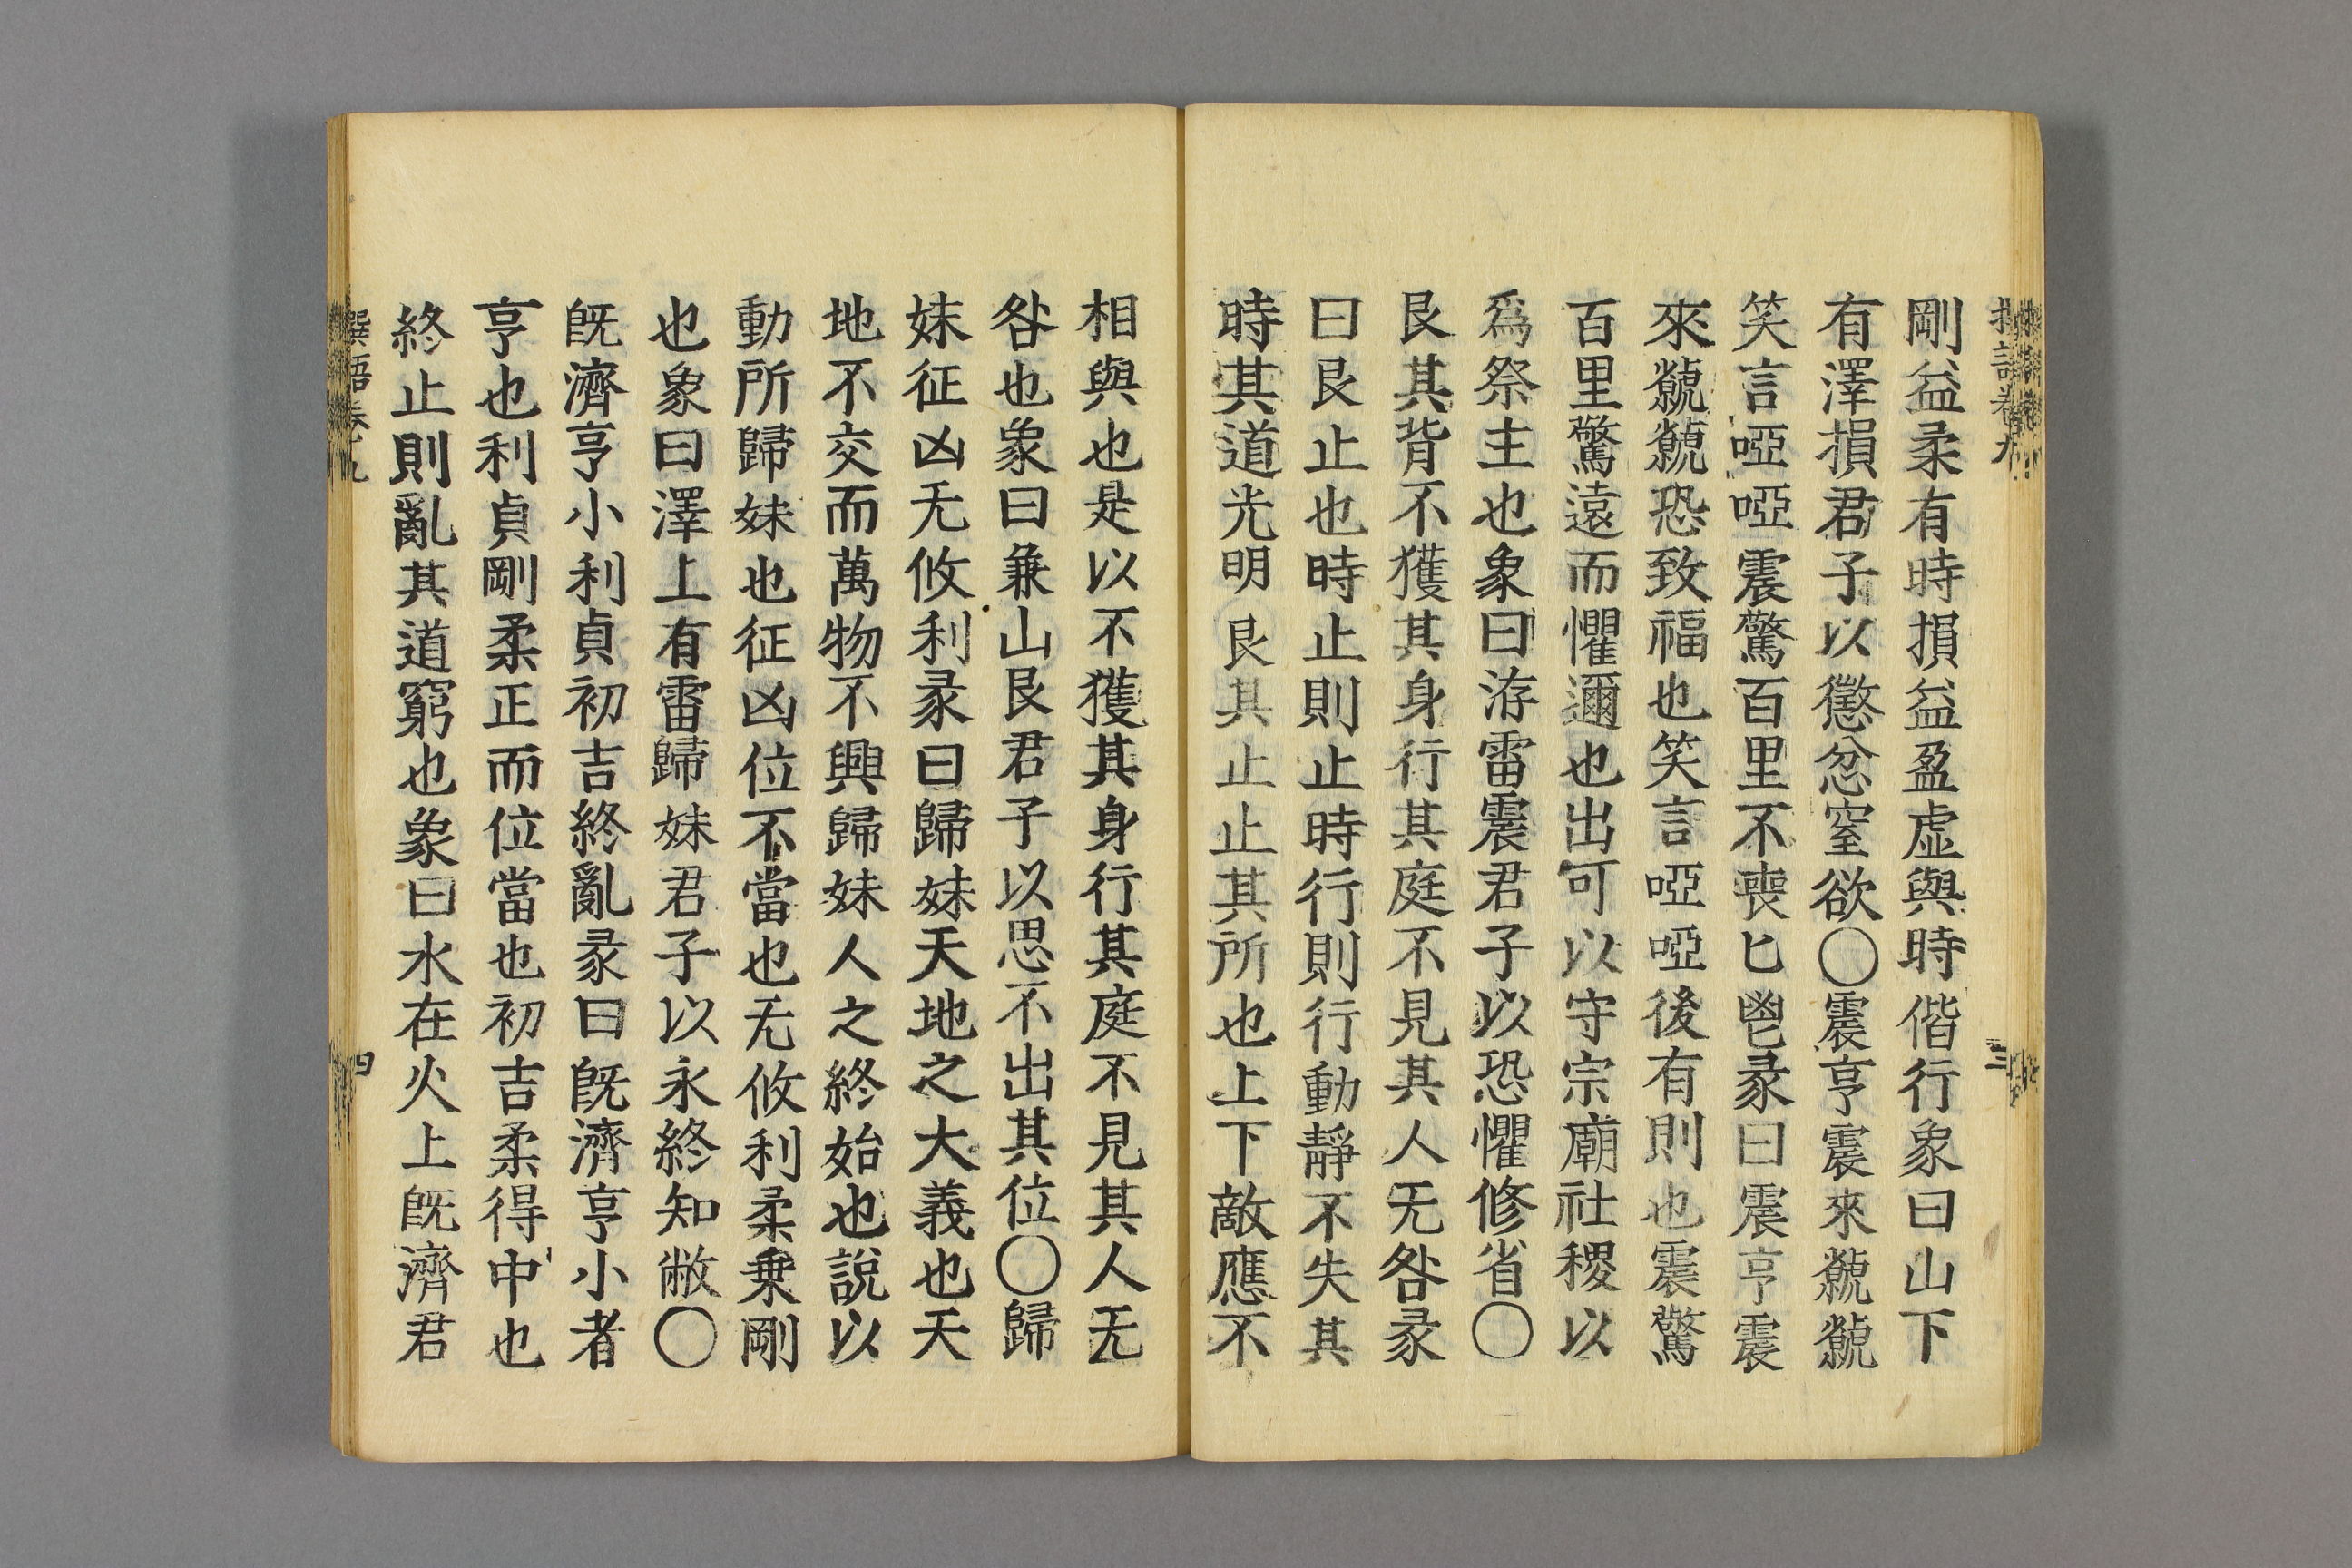 剛益柔有時損益盈虛與時偕行象曰山下
有澤損君子以懲忿窒欲〇震亨震來虩虩
笑言啞啞震驚百里不喪匕鬯彖曰震亨震
來虩虩恐致福也笑言啞啞後有則也震驚
百里驚遠而懼邇也出可以守宗廟社稷以
爲祭主也象曰洊雷震君子以恐懼修省〇
艮其背不獲其身行其庭不見其人无咎彖
曰艮止也時止則止時行則行動靜不失其
時其道光明艮其止止其所也上下敵應不
三
相與也是以不獲其身行其庭不見其人无
咎也象曰兼山艮君子以思不出其位〇歸
妹征凶无攸利彖曰歸妹天地之大義也天
地不交而萬物不興歸妹人之終始也說以
動所歸妹也征凶位不當也无攸利柔乗剛
也象曰澤上有雷歸妹君子以永終知敝〇
既濟亨小利貞初吉終亂彖曰既濟亨小者
亨也利貞剛柔正而位當也初吉柔得中也
終止則亂其道窮也象曰水在火上既濟君
四